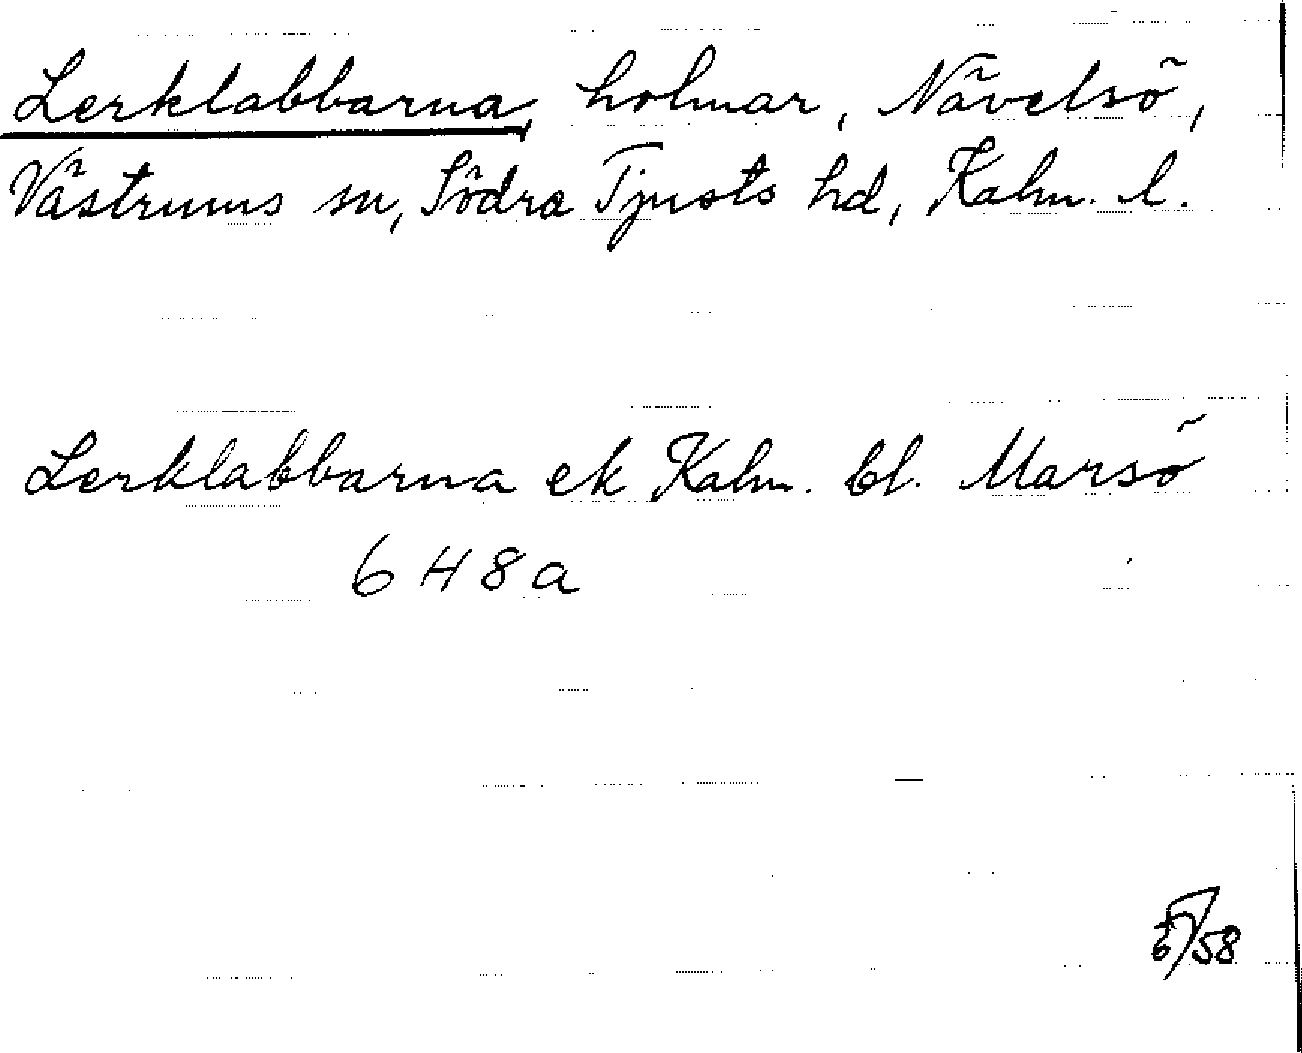 Lerklabbarna, holmar, Nävelsö,
Västrums sn, Södra Tjusts hd, Kalm. l.
Lerklabbarna ek Kalm. bl. Marsö
648a